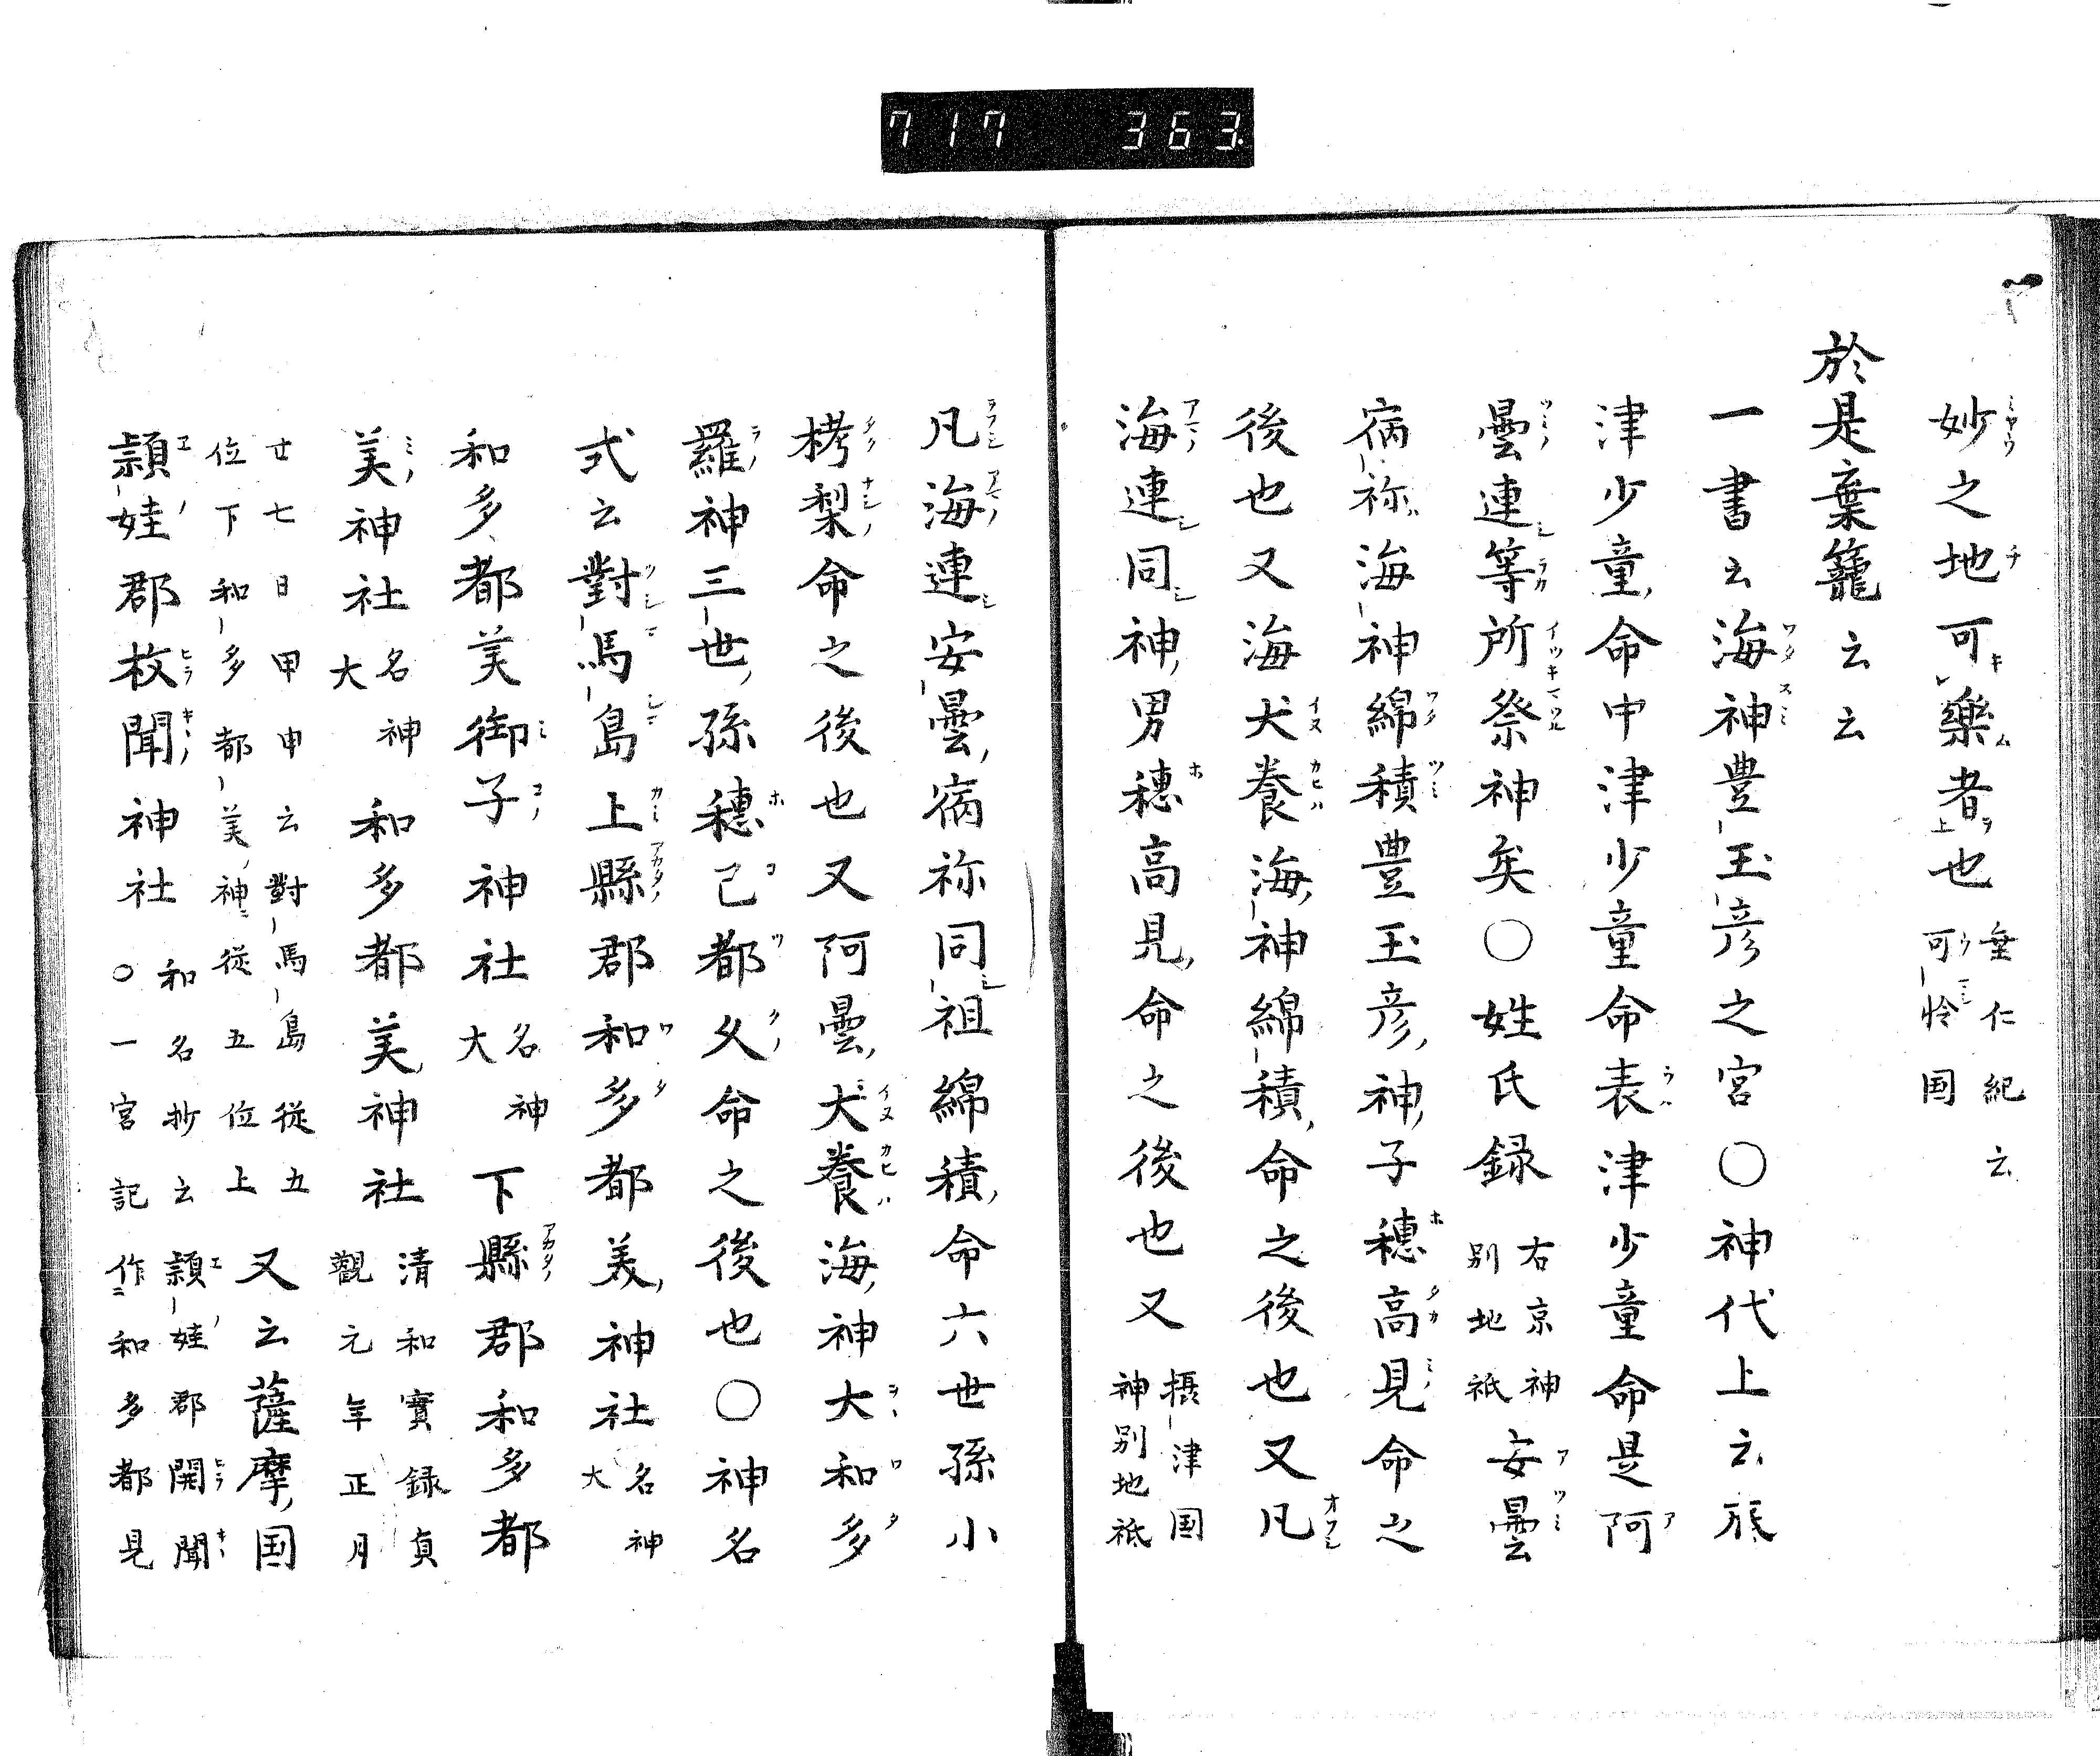 717 363
妙之地可樂者也 垂仁紀云可怜国
於是棄籠云云
一書云海神豊玉彦之宮○神代上云底
津少童命中津少童命表津少童命是阿
曇連等所祭神矣○姓氏録 右京神別地祇 安曇
宿祢海神綿積豊玉彦神子穂高見命之
後也又海犬養海神綿積命之後也又凡
海連同神男穂高見命之後也又 摂津国神別地祇
凡海連安曇宿祢同祖綿積命六世孫小
栲梨命之後也又阿曇犬養海神大和多
羅神三世孫穂己都久命之後也○神名
式云對馬島上縣郡和多都美神社 名神大
和多都美御子神社 名神大 下縣郡和多都
美神社 名神大 和多都美神社 清和實録貞觀元年正月
廿七日甲申云對馬島從五位下和多都美神從五位上 又云薩摩国
頴娃郡枚聞神社 和名抄云頴娃郡開聞○一宮記作和多都見